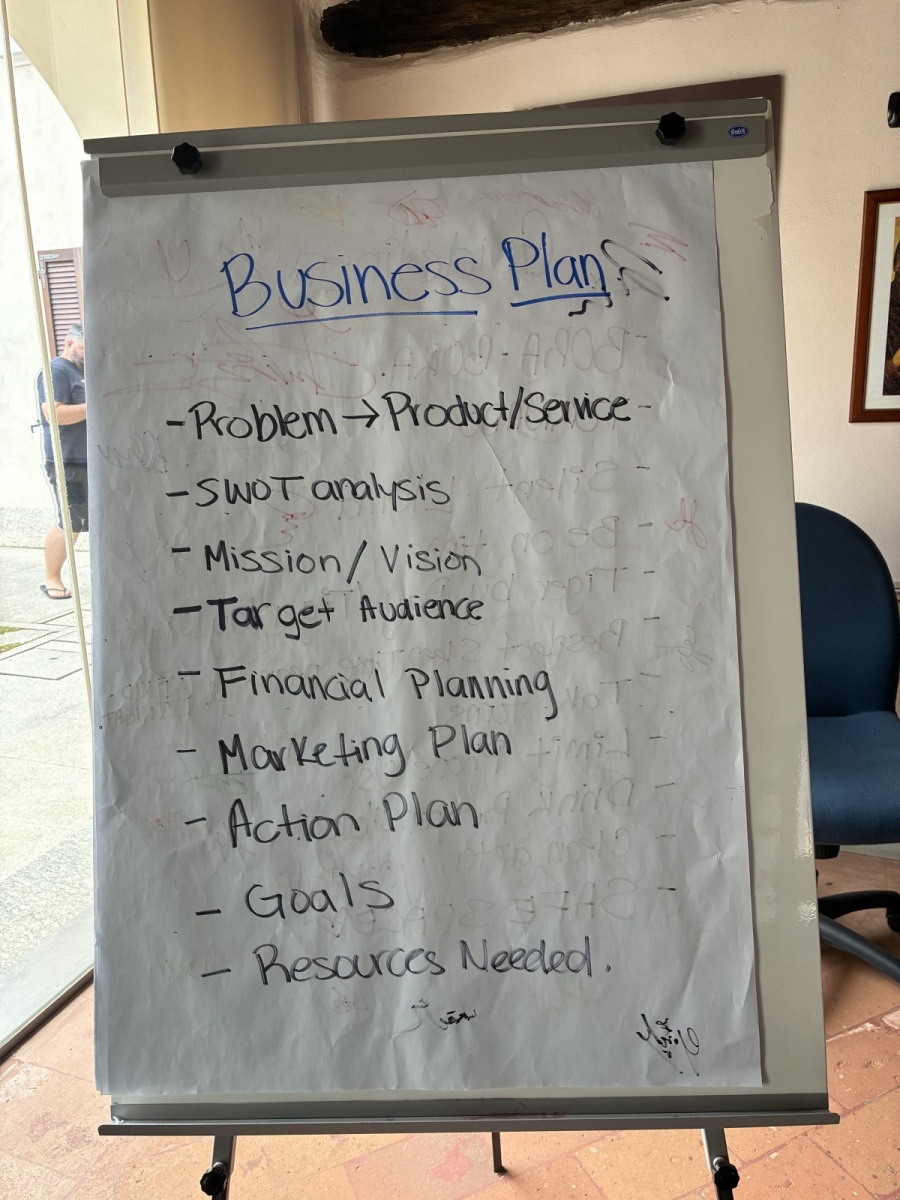 Business Plan
- Problem → Product/Service -
- SWOT analysis
- Mission/Vision
- Target Audience
- Financial Planning
- Marketing Plan
- Action Plan
- Goals
- Resources Needed.